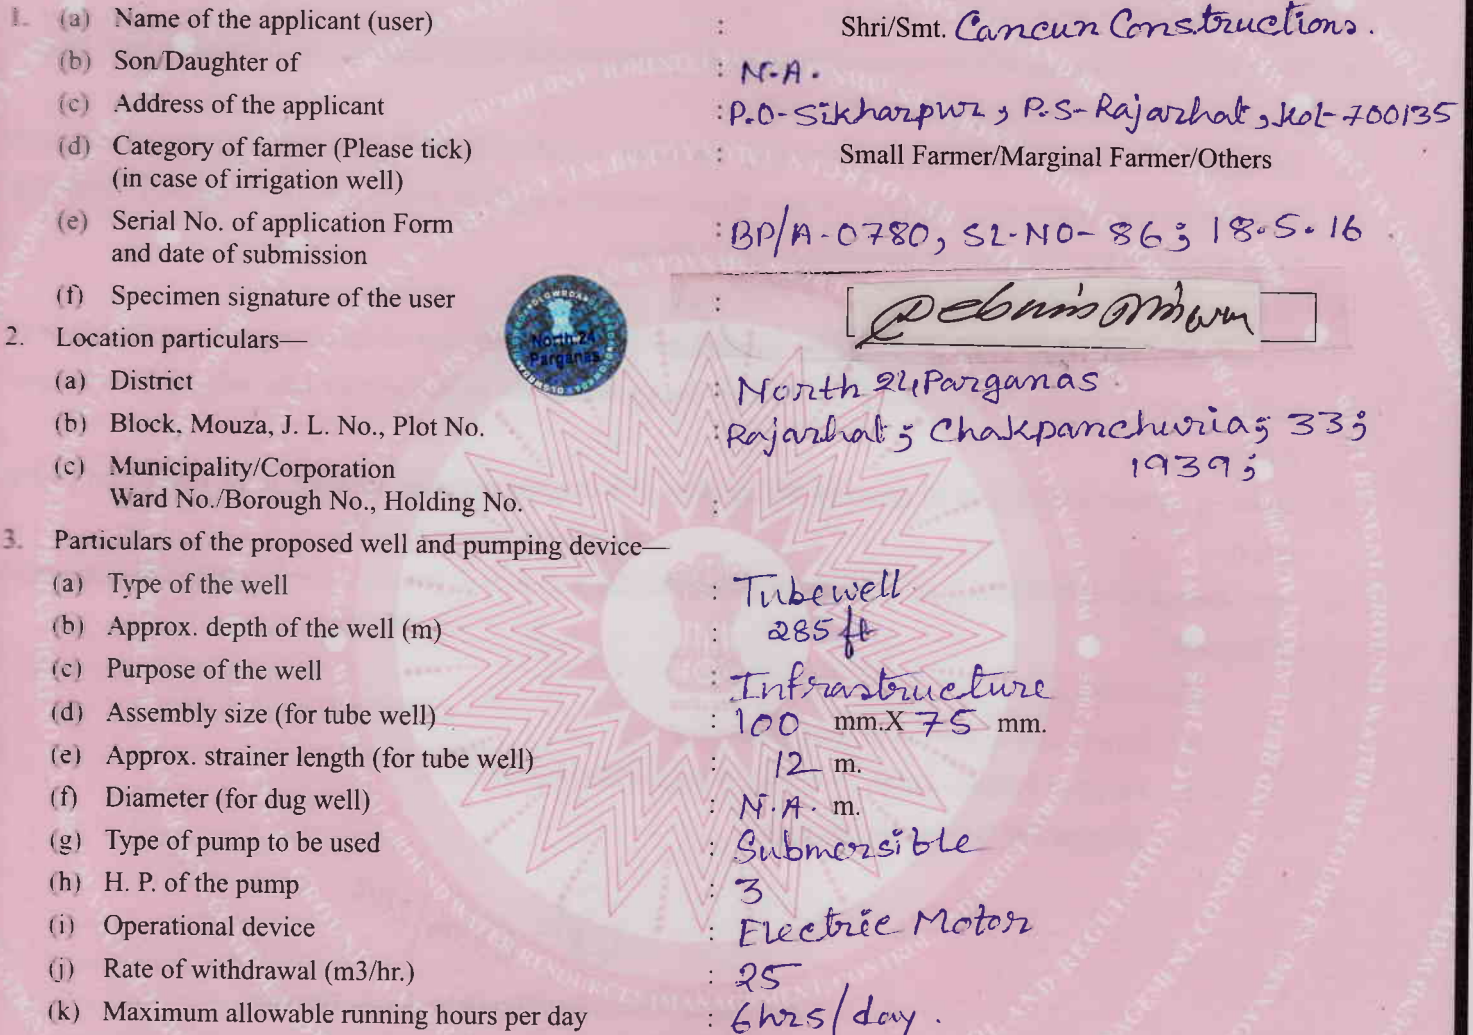 1. (a) Name of the applicant (user) : Shri/Smt. Cancun Constructions.
(b) Son/Daughter of : N.A.
(c) Address of the applicant : P.O-Sikharpur, P.S-Rajarhat, Kol-700135
(d) Category of farmer (Please tick) : Small Farmer/Marginal Farmer/Others
(in case of irrigation well)
(e) Serial No. of application Form : BP/A-0780, SL-NO-86; 18.5.16
and date of submission
(f) Specimen signature of the user :
North 24
Parganas
2. Location particulars—
(a) District : North 24 Parganas
(b) Block, Mouza, J. L. No., Plot No. : Rajarhat; Chakpanchuria; 33;
1939;
(c) Municipality/Corporation
Ward No./Borough No., Holding No. :
3. Particulars of the proposed well and pumping device—
(a) Type of the well : Tubewell
(b) Approx. depth of the well (m) : 285 ft
(c) Purpose of the well : Infrastructure
(d) Assembly size (for tube well) : 100 mm.X 75 mm.
(e) Approx. strainer length (for tube well) : 12 m.
(f) Diameter (for dug well) : N.A. m.
(g) Type of pump to be used : Submersible
(h) H. P. of the pump : 3
(i) Operational device : Electric Motor
(j) Rate of withdrawal (m3/hr.) : 25
(k) Maximum allowable running hours per day : 6hrs/day.